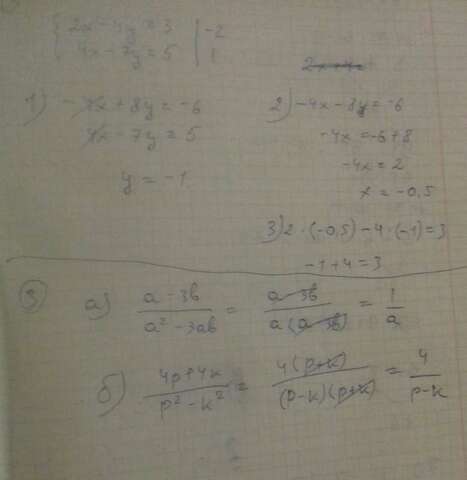 { 2x - 4y = 3 | -2
4x - 7y = 5 | 1
2x+4=
1) -4x + 8y = -6
4x - 7y = 5
y = -1
2) -4x - 8y = -6
-4x = -6+8
-4x = 2
x = -0,5
3) 2 · (-0,5) - 4 · (-1) = 3
-1+4 = 3
③ а) a - 3b / a² - 3ab = a - 3b / a (a - 3b) = 1 / a
б) 4p+4k / p² - k² = 4 (p+k) / (p-k)(p+k) = 4 / p-k